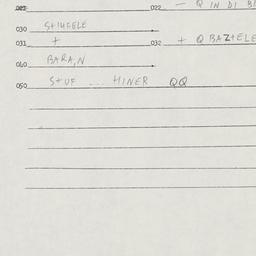 022 — Q IN DI
030 S+IUCELE
031 + 032 + Q BAZ+ELE
040 BARA,N
050 S+UF ... HINER QQ